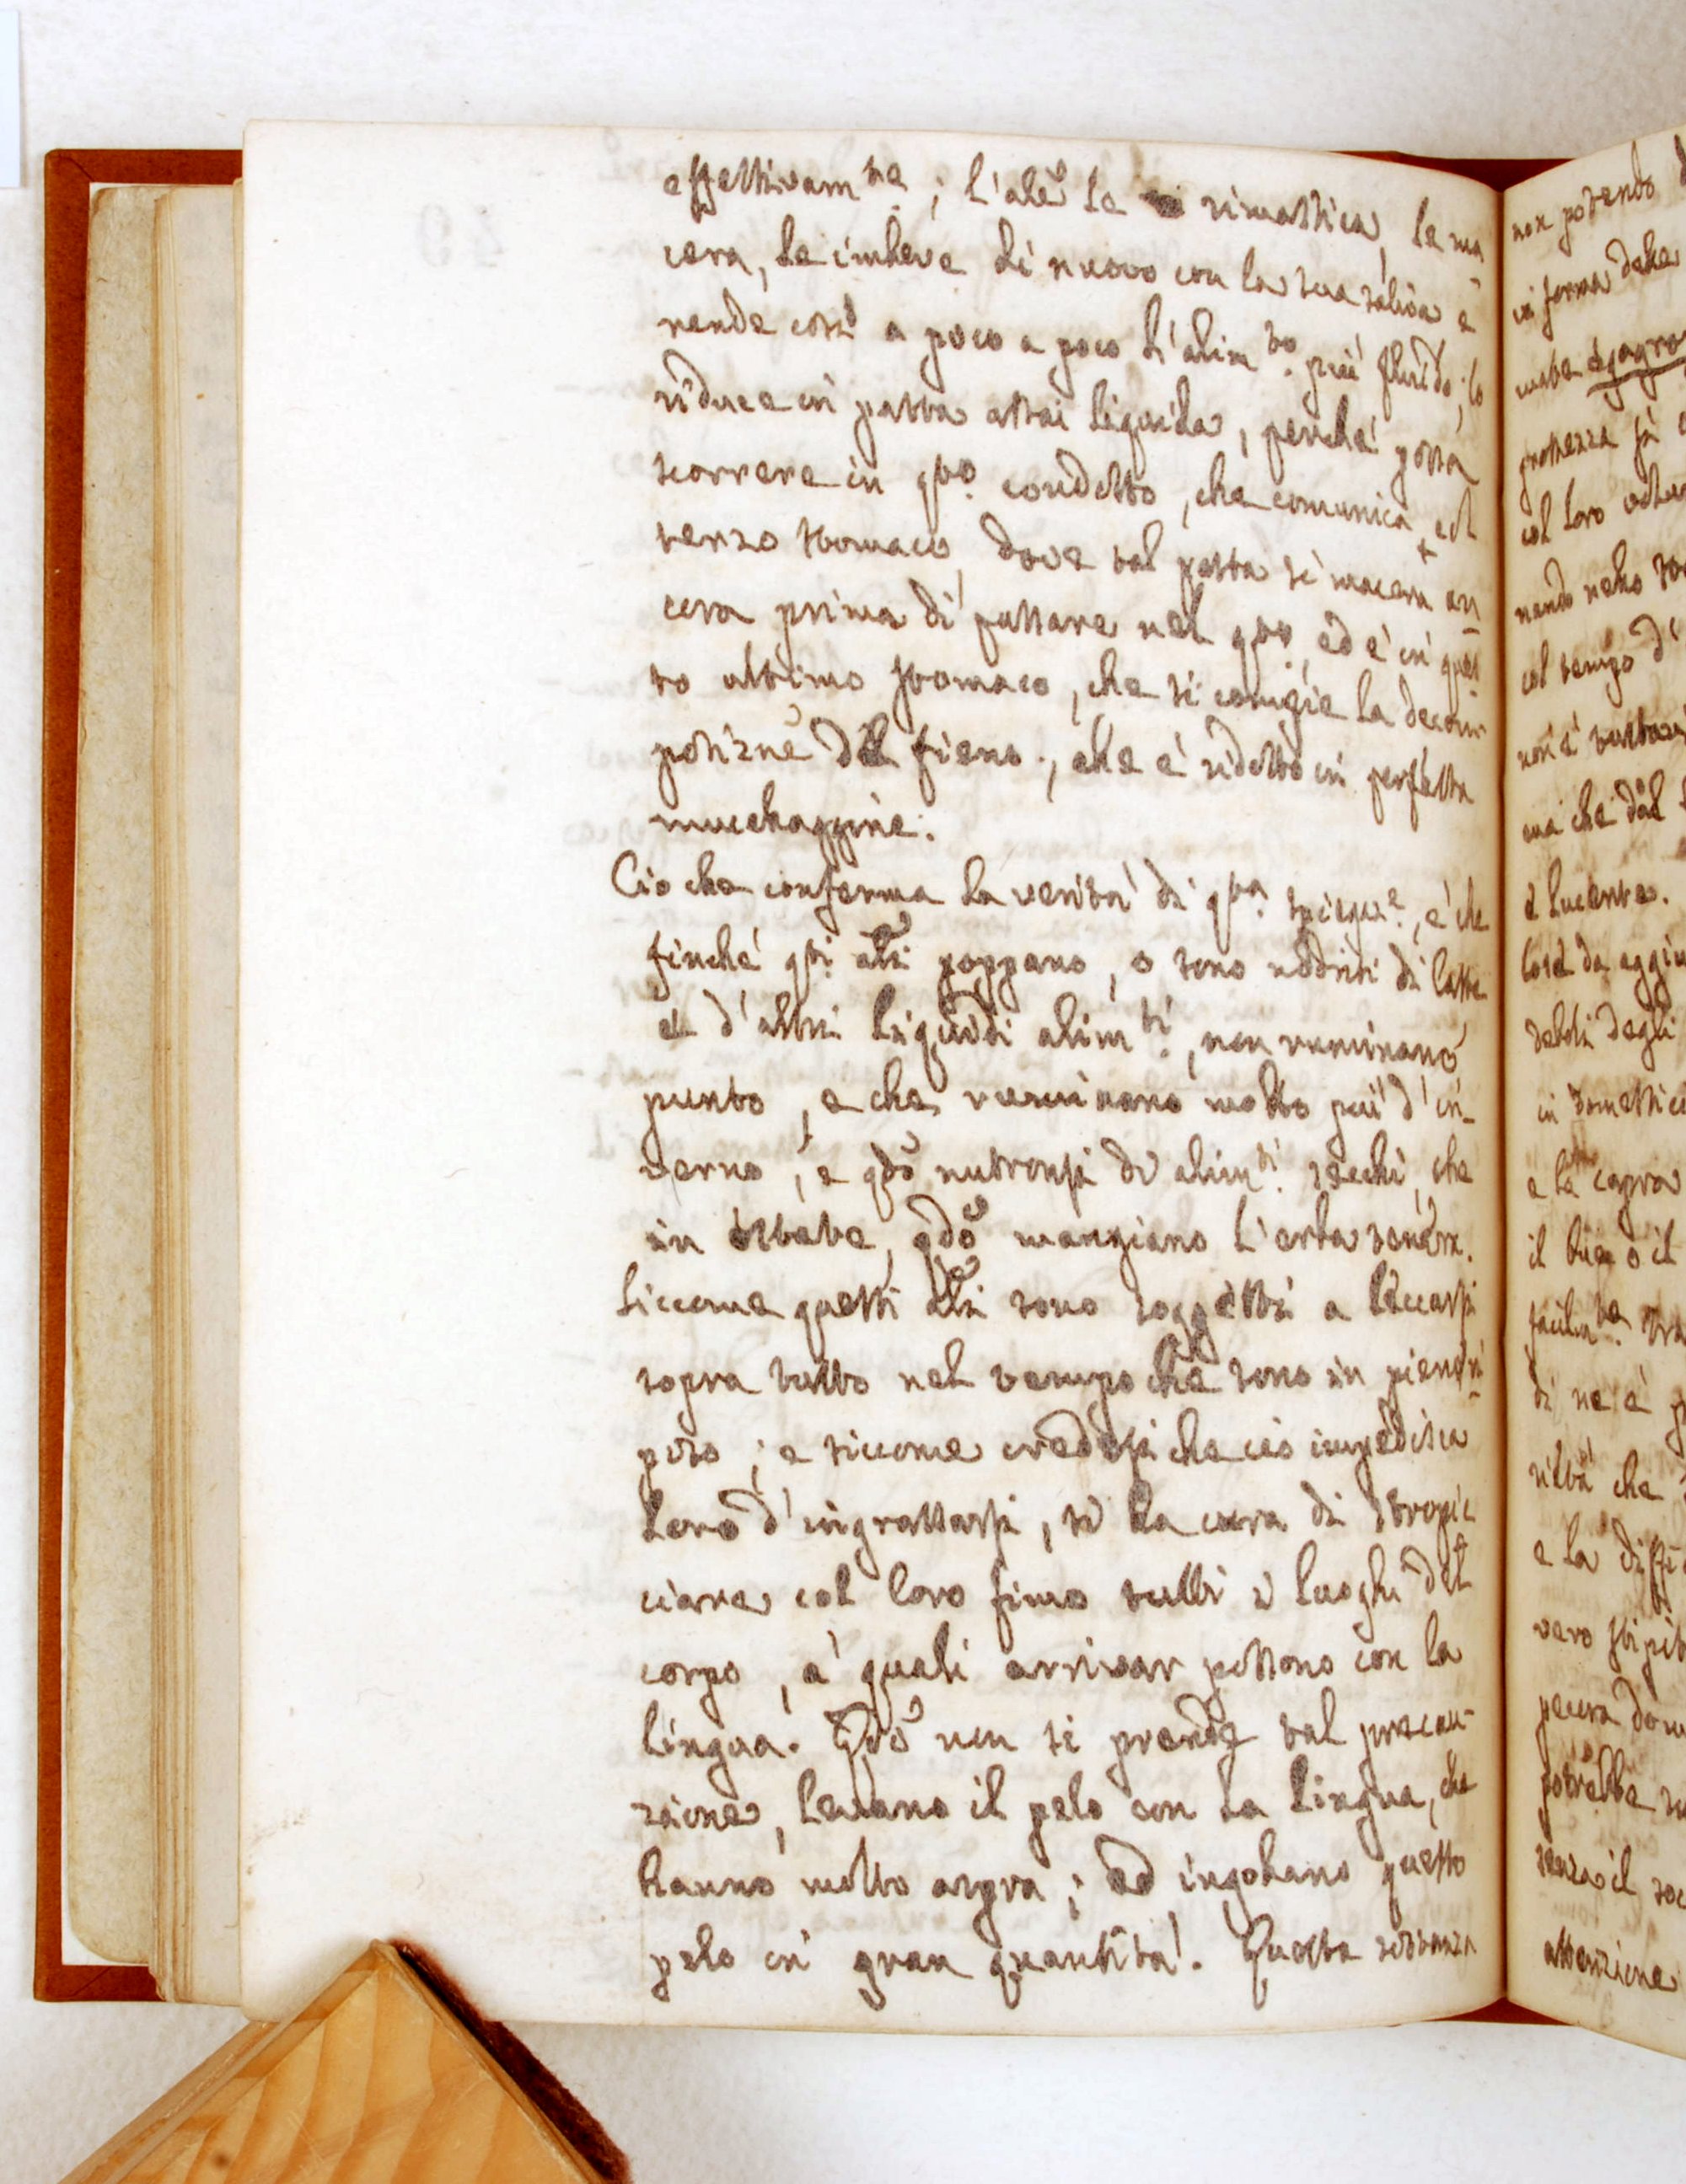 effettivam.te; l'ale la rimastica, la ma
cera, la imbeve di nuovo con la sua saliva e
rende così a poco a poco l'alim.to più fluido; lo
riduce in pasta assai liquida, perché possa
scorrere in q.to condotto, che comunica col
terzo stomaco, dove tal pasta si macera an
cora prima di passare nel q.to, ed è in ques
to ultimo stomaco, che si compie la decom
posizne del fieno, che è ridotto in perfetta
muccilaggine.
Ciò che conferma la verità di q.ta spiegaz.e, è che
finché q.ti ali poppano, o sono nodriti di latte
e d'altri liquidi alim.ti, non ruminano
punto, e che ruminano molto più d'in
verno, e qdo nutronsi di alim.ti secchi, che
in estate, qdo mangiano l'erba tenera.
Siccome questi ali sono soggetti a leccarsi
sopra tutto nel tempo che sono in pien ri
poso; e siccome credesi che ciò impedisca
loro d'ingrassarsi, si ha cura di stropic
ciare col loro fimo tutti i luoghi del
corpo, a' quali arrivar possono con la
lingua. Qdo non si prende tal precau-
zione, levano il pelo con la lingua, che
hanno molto aspra; ed ingoiano questo
pelo in gran quantità. Questa sostanza
non potendo
in forma delle
mate egagro
grossezza fà
col loro volu
nando nello sto
col tempo d'
non è
ma che dal
e lucente.
Cose da aggiu
deboli degli
in domestic
e la capra
il bue o il
facilm.te tra
di ne è
rilità che
e la diffe
vero stipit
pecora dom
potrebbe
senza il soc
attenzione